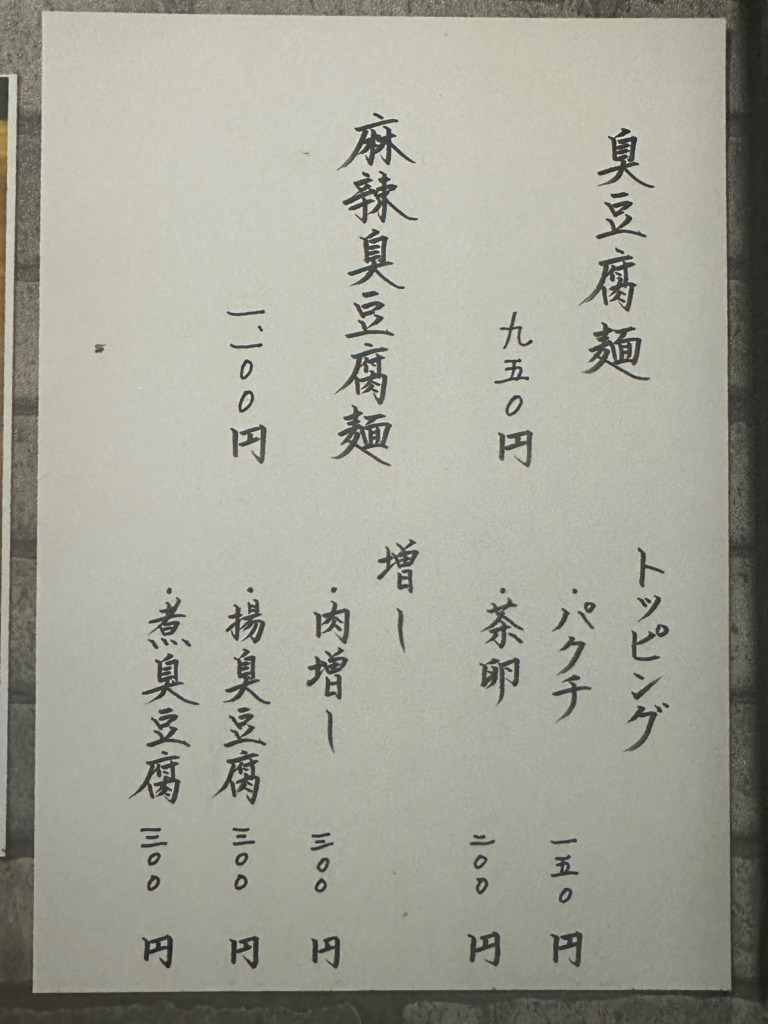 臭豆腐麺
九五〇円
麻辣臭豆腐麺
一、一〇〇円
トッピング
・パクチ 一五〇円
・茶卵 二〇〇円
増し
・肉増し 三〇〇円
・揚臭豆腐 三〇〇円
・煮臭豆腐 三〇〇円